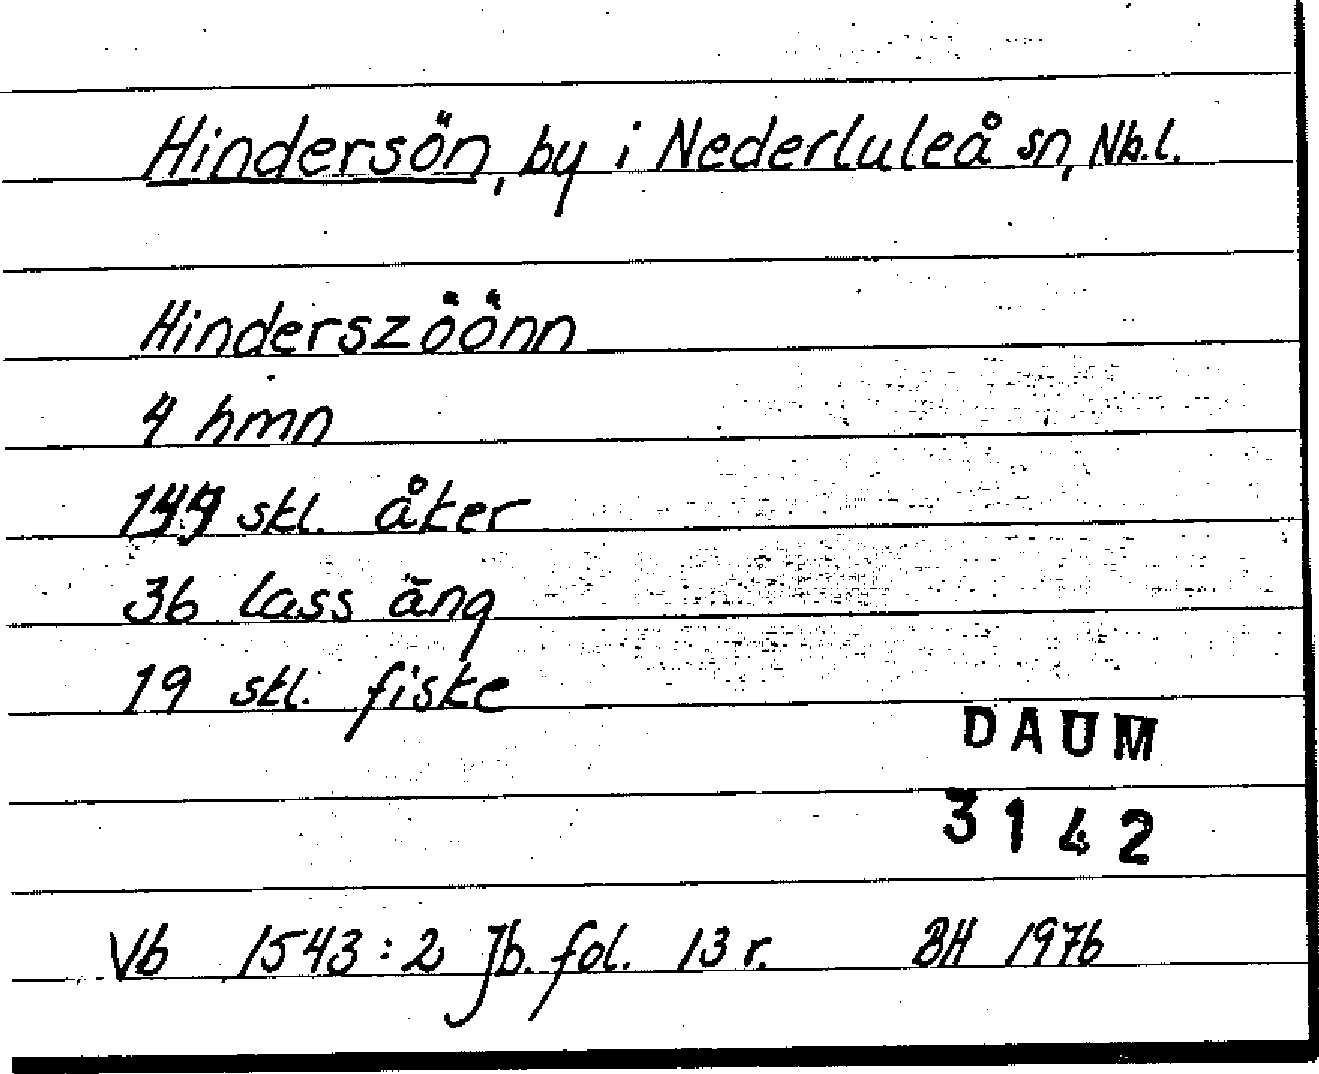 Hindersön, by i Nederluleå sn, Nb.l.
Hinderszöönn
4 hmn
144 skl. åker
36 lass äng
19 skl. fiske
DAUM
3142
Vb 1543:2 Jb. fol. 13 r. BH 1976